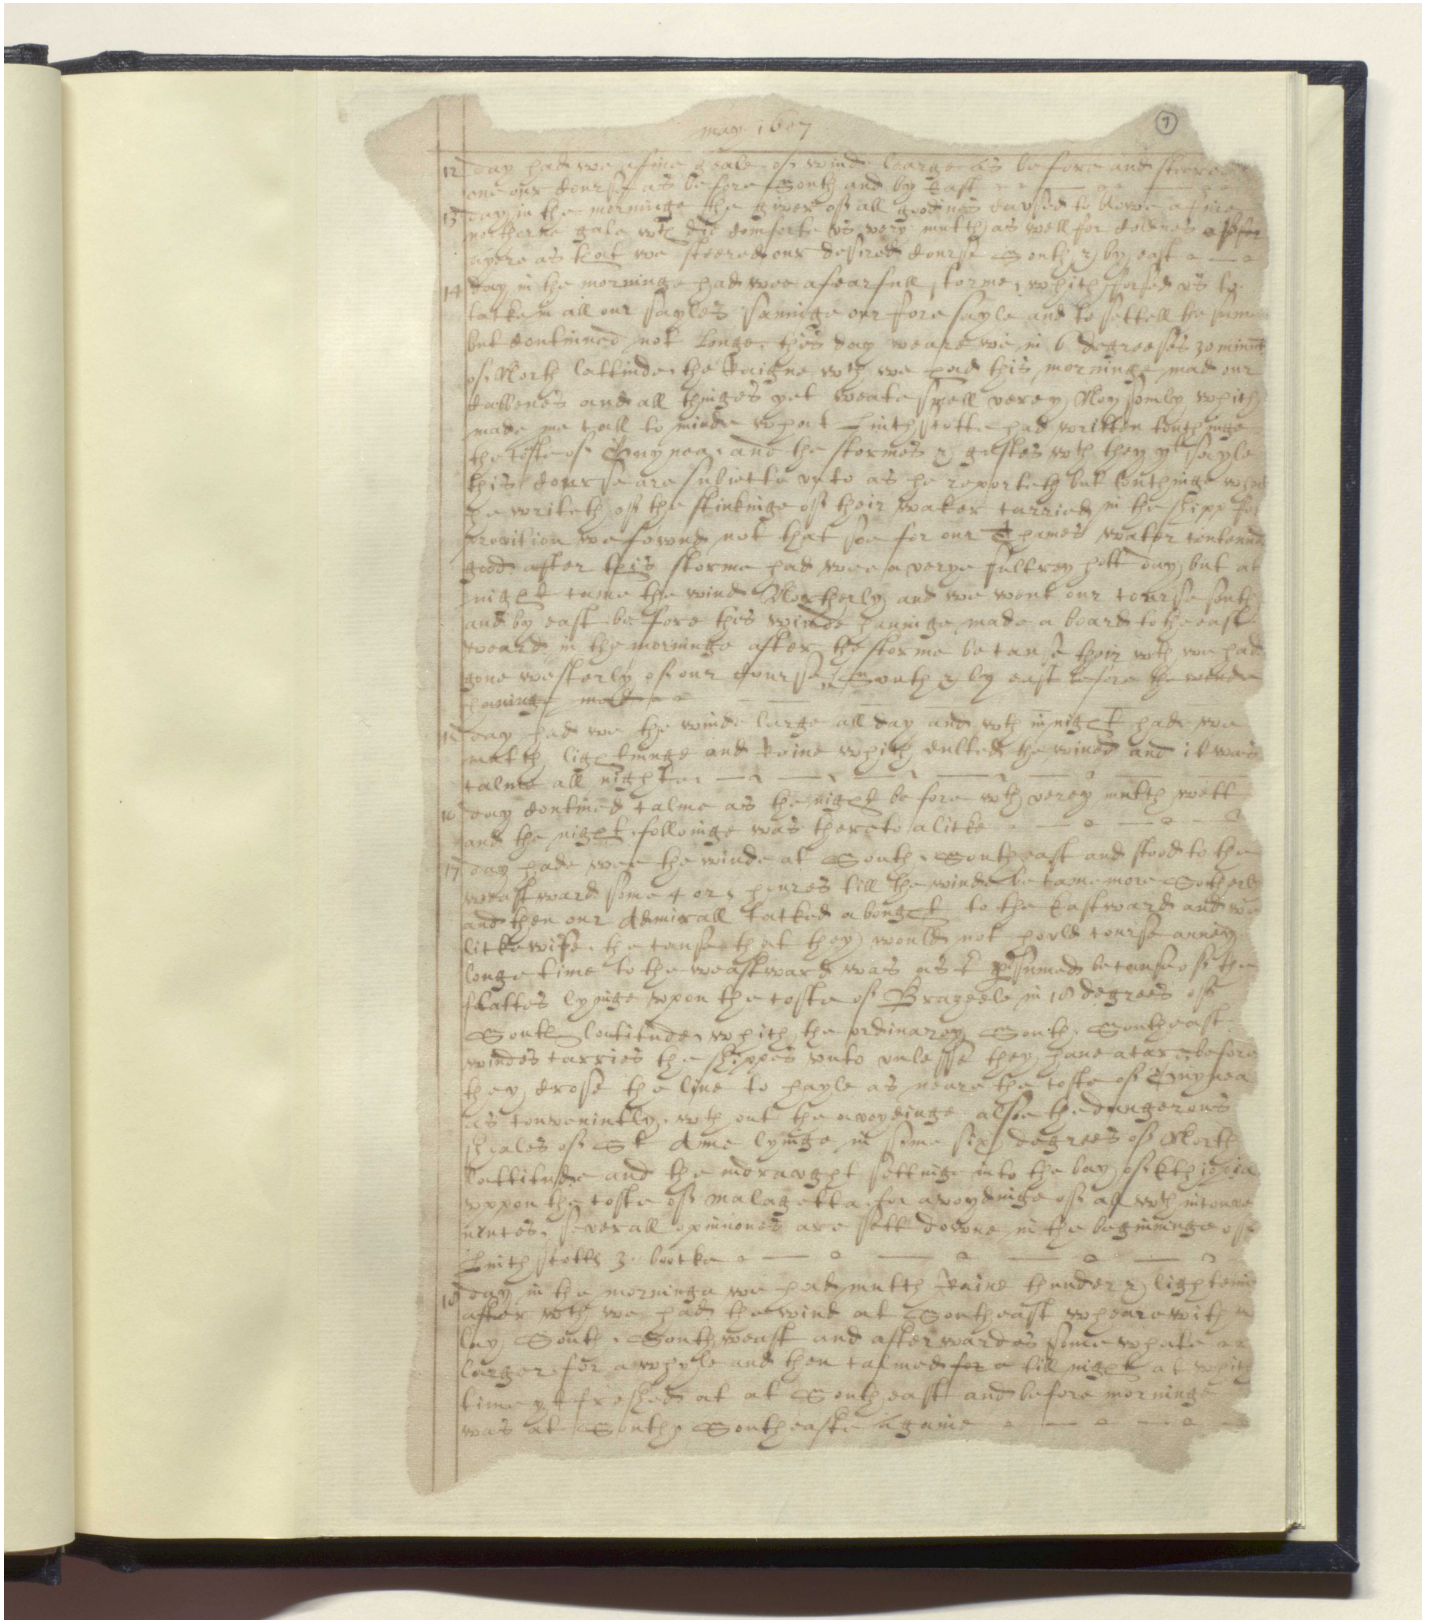 may 1607
7
12 day had we a fine geale of winde learge as before and steered
one our course as before South and by East
13 day in the morninge the giver of all goodnes caused to blowe a fine
northerne gale wch did comforte us very mutch as well for colenes of
ayere as that we steered our desired course South & by east
14 day in the morninge had wee a fearfull storme, which forsed us to
take in all our sayles savinge our fore sayle and to settell the same
but continued not longe. this day weare we in 6 degreeses 30 minut
of North lattitude, the Raigne wch we had this morninge made our
and all thinges yet weate smell verey Noysomly which
made me call to minde what Linschotte had written touchinge
the coste of Guynea, and the stormes & gustes wch they yt sayle
this course are subjecte unto as he reporteth but touchinge what
he writeth of the stinkinge of their water carried in the shipp for
provition we fownd not that soe for our Thames water contenued
good. after this storme had wee a verye sultrey hott day, but at
night came the wind Northerly and we went our course south
and by east before this winde havinge made a board to the east
weard in the morninge after the storme because their wch we had
gone westerly of our course South & by east before the winde
15 day had we the winde large all day and wth in night hade we
mutch lightninge and Raine which dulled the winde and it was
calme all night
16 day continued calme as the night before wth verey mutch wett
and the night followinge was thereto a licke
17 day hade wee the winde at South, Southeast and stood to the
weastward some 4 or 5 houres till the winde became more Southerly
and then our Admirall tacked abought to the Eastward and we
lickewise. the cause that they would not hould course anney
longe time to the weastward was as I presumed because of the
flattes lyinge upon the coste of Brazeele in 18 degrees of
South latitude, which the ordinarey South, Southeast
windes carries the shippes unto unlesse they have a care before
they crose the line to hayle as neare the coste of Guynea
as convenintly, wth out the avoydinge allso the dangerous
shoales of St Anne lyinge in some six degrees of North
Lattitude and the indraught settinge into the bay of Ethiopia
uppon the coste of malagetta. for avoydinge of all wch inconve
niences, severall opinnones are sett downe in the beginninge of
Linschotts 3. boocke
18 day in the morninge we had mutch Raine thunder & lightenin
after wch we had the wind at Southeast wheare with we
lay South, Southweast and afterwardes some whate
larger for a whyle and then calmed till night at which
time yt freshed at Southeast and before morninge
was at South, Southeaste againe